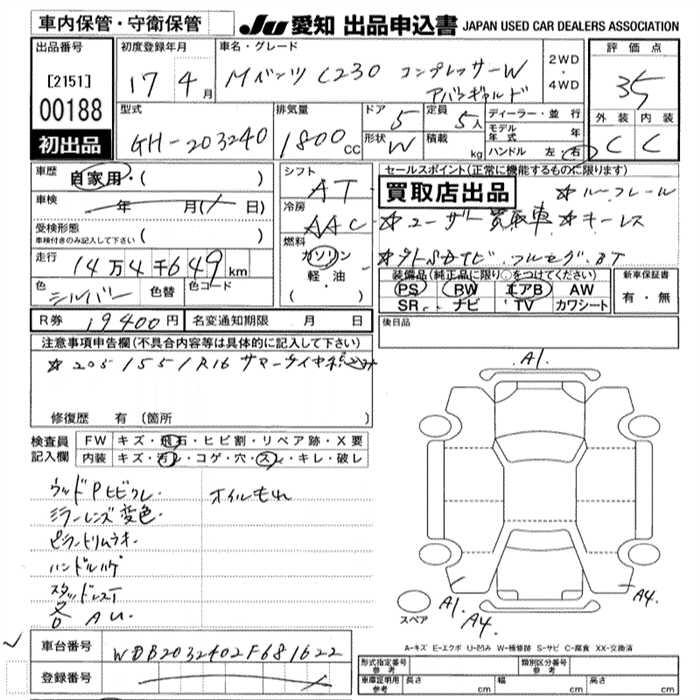 車内保管・守衛保管
JU 愛知 出品申込書 JAPAN USED CAR DEALERS ASSOCIATION
出品番号
[2151]
00188
初出品
初度登録年月
17年4月
車名・グレード
Mベンツ C230 コンプレッサーW
アバンギャルド
2WD
・
4WD
評価点
35
外装 内装
C C
型式
GH-203240
排気量
1800cc
ドア
5
形状
W
定員
5人
積載
kg
ディーラー・並行
モデル年式 年
ハンドル 左・右
車歴
自家用・( )
車検
年 月( 日)
受検形態
車検付きのみ記入して下さい ( )
走行
14万4千649km
色
シルバー
色替
色コード
シフト
AT
冷房
AAC
燃料
ガソリン
軽・油
( ・ )
セールスポイント(正常に機能するものに限ります)
買取店出品
☆ルーフレール
☆ユーザー買取車☆キーレス
☆外SDナビ フルセグ BT
装備品(純正品に限り○をつけてください)
PS BW エアB AW
SR ナビ TV カワシート
新車保証書
有・無
R券
19400円
名変通知期限 月 日
後日品
注意事項申告欄(不具合内容等は具体的に記入して下さい)
☆205/55/R16 サマータイヤ積込み
修復歴 有(箇所
検査員記入欄
FW キズ・飛石・ヒビ割・リペア跡・X要
内装 キズ・汚レ・コゲ・穴・スレ・キレ・破レ
ウッドPヒビワレ
オイルもれ
ミラーレンズ変色
ピラートリムウキ
ハンドルハゲ
スタッドレスT
各AU
A1
A1
A4
A4
スペア
A-キズ E-エクボ U-凹み W-補修跡 S-サビ C-腐食 XX-交換済
車台番号
WDB2032402F681622
登録番号
形式指定番号
参考
類別区分番号
参考
車庫証明用
参考
長さ cm
幅 cm
高さ cm